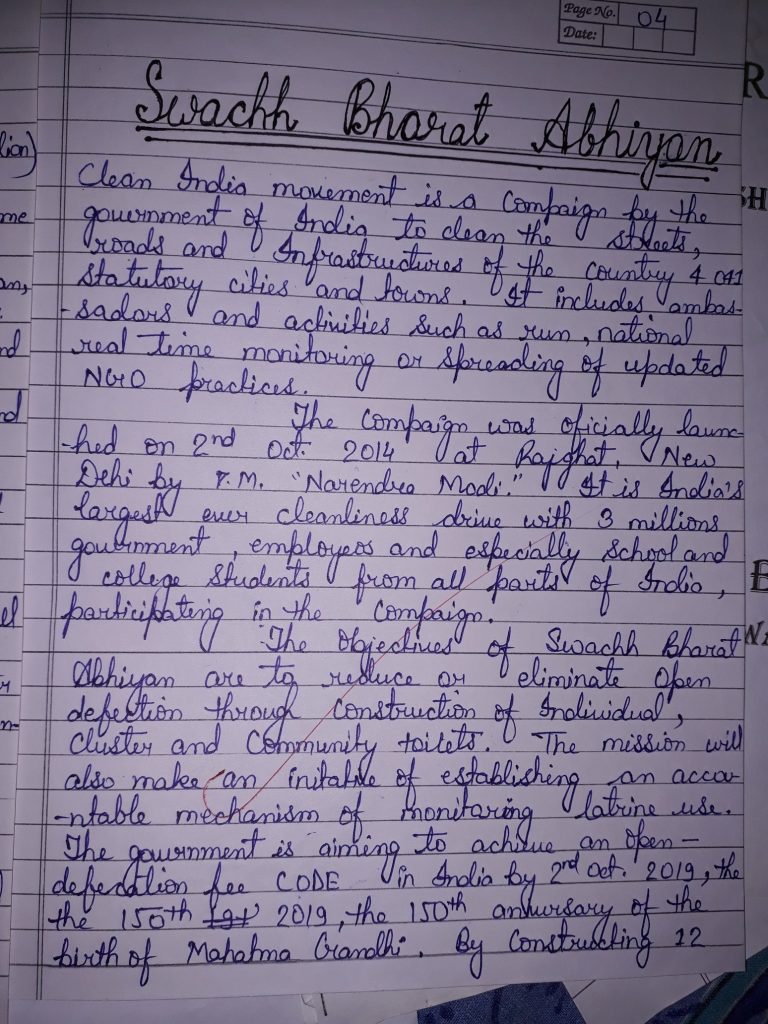 Page No. 04
Date:
Swachh Bharat Abhiyan
Clean India movement is a Compaign by the
government of India to clean the streets,
roads and Infrastructures of the country 4 041
statutory cities and towns. It includes ambas-
-sadors and activities such as run, national
real time monitoring or spreading of updated
NGO practices.
The Compaign was oficially launc-
-hed on 2nd Oct. 2014 at Rajghat, New
Dehi by P.M. "Narendra Modi." It is India's
largest ever cleanliness drive with 3 millions
government, employees and especially School and
college Students from all parts of India,
participating in the Compaign.
The Objectives of Swachh Bharat
Abhiyan are to reduce or eliminate Open
defection through Construction of Individual,
Cluster and Community toilets. The mission will
also make an initative of establishing an accou-
-ntable mechanism of monitoring latrine use.
The government is aiming to achieve an Open-
defecation fee CODE in India by 2nd Oct. 2019, the
the 150th 2019, the 150th anniversary of the
birth of Mahatma Grandhi. By Constructing 12
lion)
me
an,
nd
nd
el
n-
R
SH
E